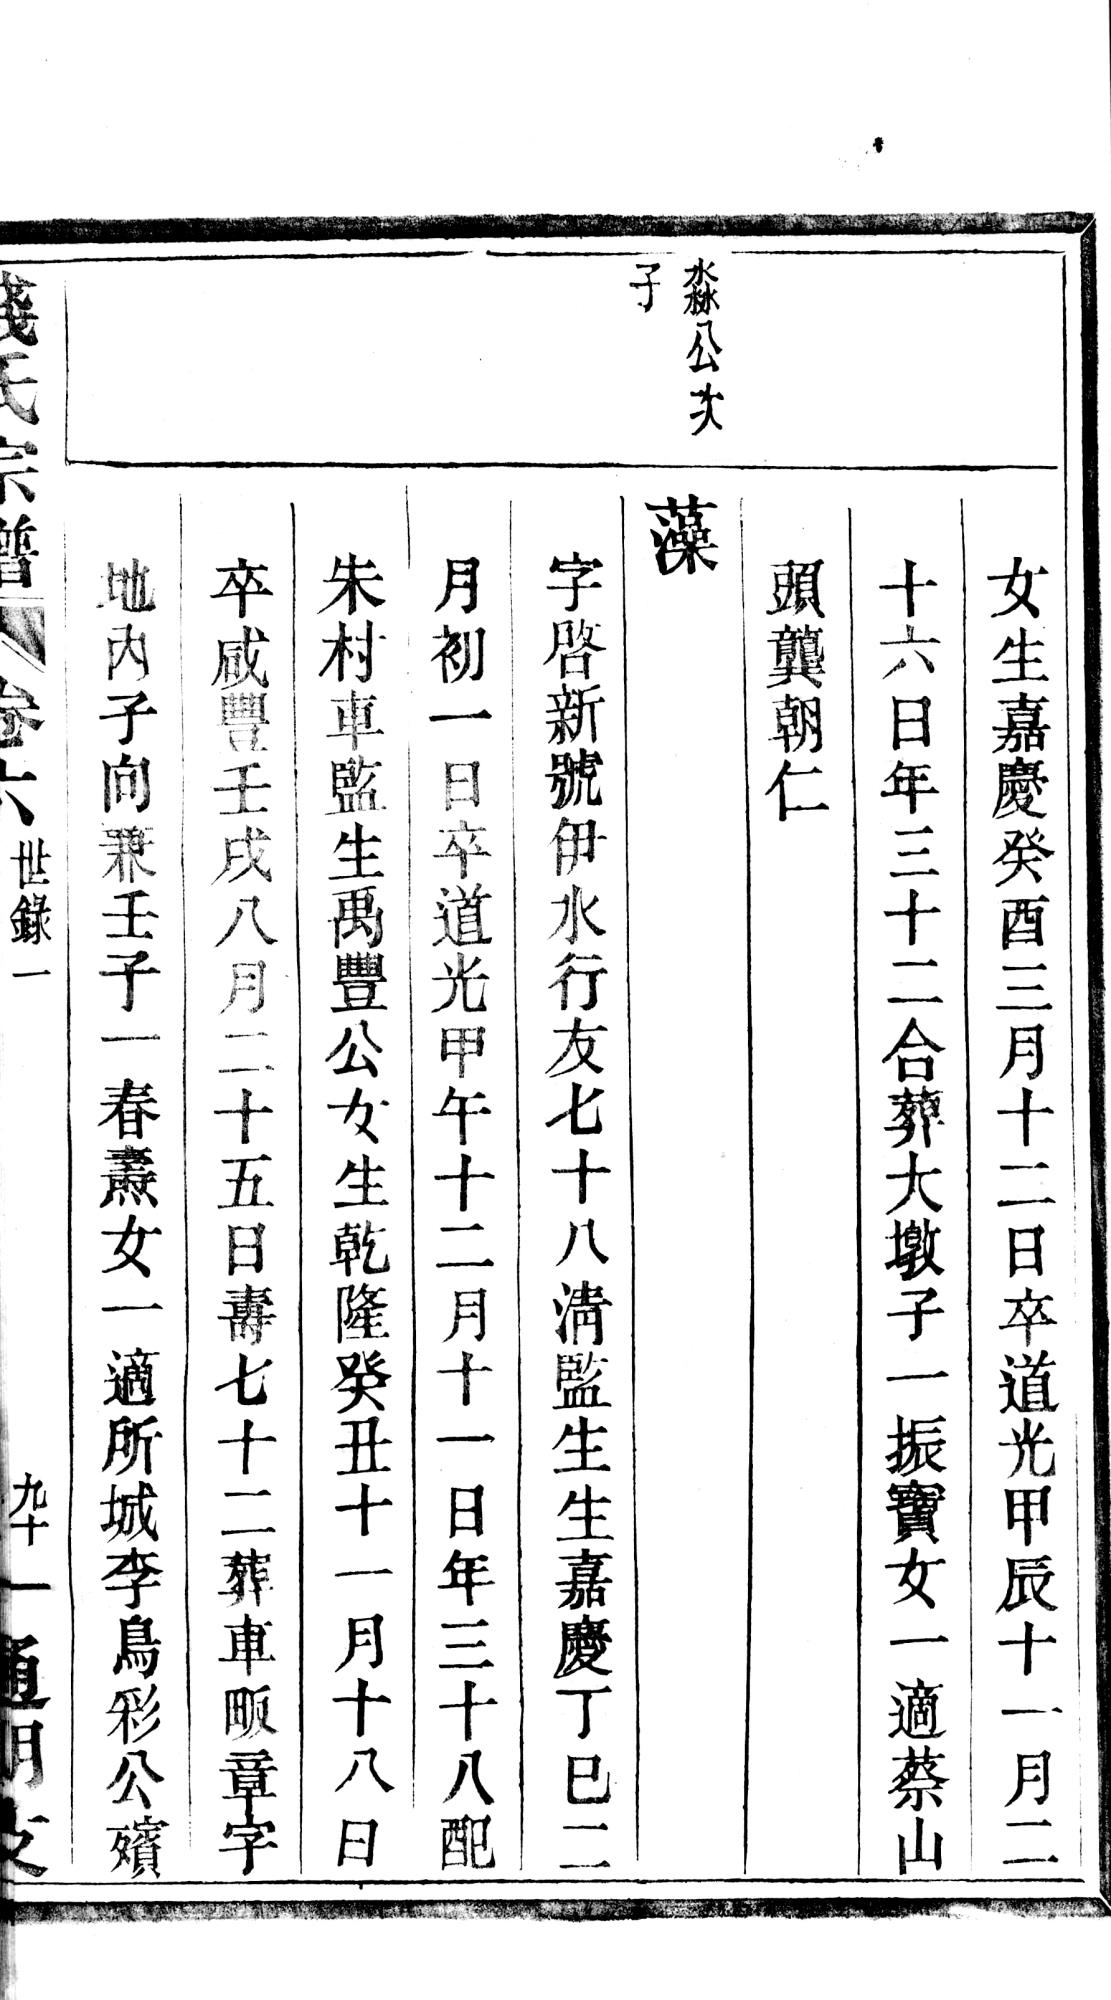 女生嘉慶癸酉三月十二日卒道光甲辰十一月二
十六日年三十二合葬大墩子一振寶女一適蔡山
頭龔朝仁
淼公次
子
藻
字啓新號伊水行友七十八淸監生生嘉慶丁巳二
月初一日卒道光甲午十二月十一日年三十八配
朱村車監生禹豐公女生乾隆癸丑十一月十八日
卒咸豐壬戌八月二十五日壽七十二葬車畈章字
地內子向兼壬子一春燾女一適所城李鳥彩公殯
錢氏宗譜 卷六 世錄一 九十一 通明支